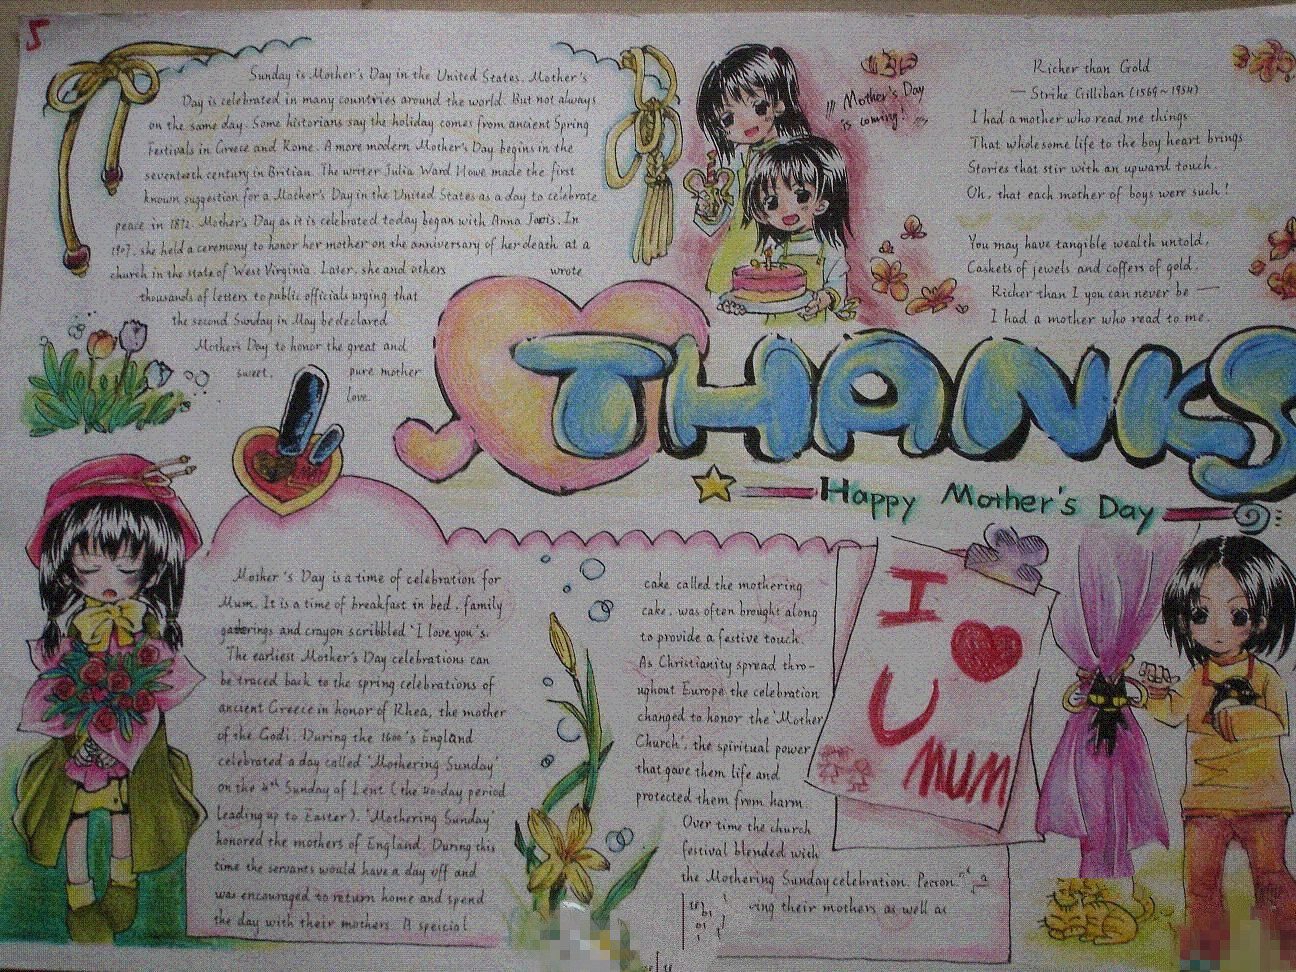 5
Sunday is Mother's Day in the United States. Mother's
Day is celebrated in many countries around the world. But not always
on the same day. Some historians say the holiday comes from ancient Spring
Festivals in Greece and Rome. A more modern Mother's Day begins in the
seventeeth century in Britian. The writer Julia Ward Howe made the first
known suggestion for a Mother's Day in the United States as a day to celebrate
peace in 1872. Mother's Day as it is celebrated today began with Anna Javis. In
1907, she held a ceremony to honor her mother on the anniversary of her death at a
church in the state of West Virginia. Later, she and others wrote
thousands of letters to public officials urging that
the second Sunday in May be declared
Mother's Day to honor the great and
sweet, pure mother
love.
Mother's Day
is coming!
Richer than Gold
— Strike Gilliban (1569~1954)
I had a mother who read me things
That wholesome life to the boy heart brings
Stories that stir with an upward touch.
Oh, that each mother of boys were such!
You may have tangible wealth untold,
Caskets of jewels and coffers of gold.
Richer than I you can never be —
I had a mother who read to me.
THANKS
Happy Mother's Day
Mother's Day is a time of celebration for
Mum. It is a time of breakfast in bed, family
gatherings and crayon scribbled 'I love you's.
The earliest Mother's Day celebrations can
be traced back to the spring celebrations of
ancient Greece in honor of Rhea, the mother
of the Godi. During the 1600's England
celebrated a day called 'Mothering Sunday'
on the 4th Sunday of Lent (the 40-day period
leading up to Easter). 'Mothering Sunday'
honored the mothers of England. During this
time the servants would have a day off and
was encouraged to return home and spend
the day with their mothers. A speicial
cake called the mothering
cake, was often brought along
to provide a festive touch.
As Christianity spread thro-
ughout Europe the celebration
changed to honor the 'Mother
Church', the spiritual power
that gave them life and
protected them from harm
Over time the church
festival blended with
the Mothering Sunday celebration.
ving their mothers as well as
I
U
MUM